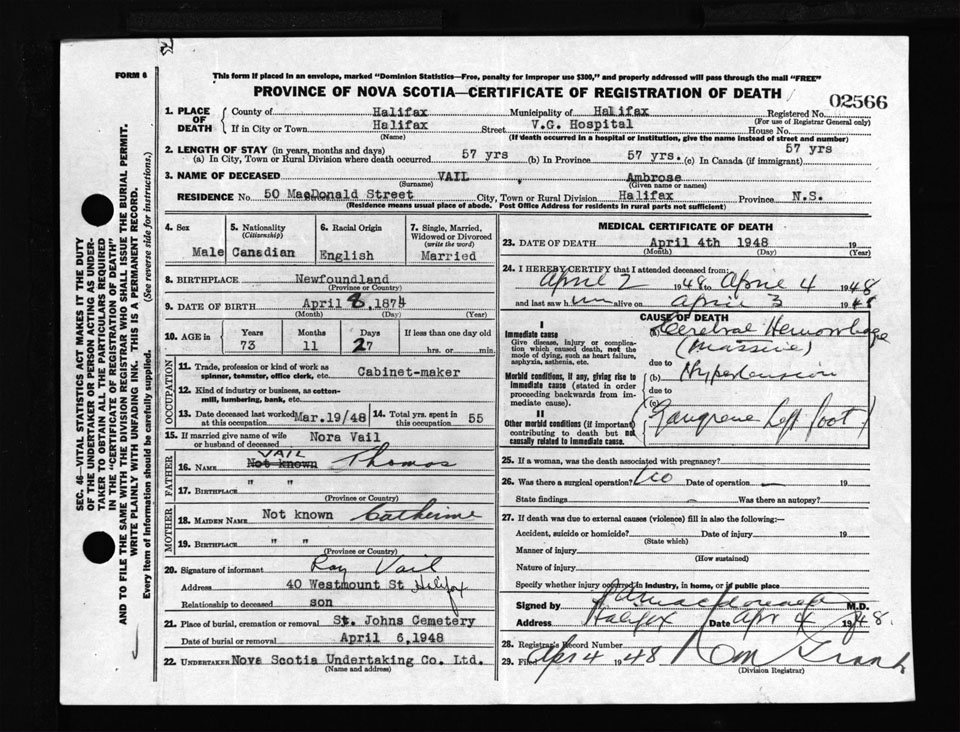 FORM 6
This form if placed in an envelope, marked "Dominion Statistics—Free, penalty for improper use $300," and properly addressed will pass through the mail "FREE"
PROVINCE OF NOVA SCOTIA—CERTIFICATE OF REGISTRATION OF DEATH
02566
1. PLACE OF DEATH County of Halifax Municipality of Halifax Registered No.
(For use of Registrar General only)
If in City or Town Halifax Street V.G. Hospital House No.
(Name) (If death occurred in a hospital or institution, give the name instead of street and number)
2. LENGTH OF STAY (in years, months and days)
(a) In City, Town or Rural Division where death occurred 57 yrs (b) In Province 57 yrs. (c) In Canada (if immigrant) 57 yrs
3. NAME OF DECEASED VAIL, Ambrose
(Surname) (Given name or names)
RESIDENCE No. 50 MacDonald Street City, Town or Rural Division Halifax Province N.S.
(Residence means usual place of abode. Post Office Address for residents in rural parts not sufficient)
4. Sex 5. Nationality (Citizenship) 6. Racial Origin 7. Single, Married, Widowed or Divorced (write the word)
Male Canadian English Married
8. BIRTHPLACE Newfoundland
(Province or Country)
9. DATE OF BIRTH April 8, 1874
(Month) (Day) (Year)
10. AGE in Years Months Days If less than one day old
73 11 27 hrs. or min.
OCCUPATION
11. Trade, profession or kind of work as spinner, teamster, office clerk, etc. Cabinet-maker
12. Kind of industry or business, as cotton-mill, lumbering, bank, etc.
13. Date deceased last worked at this occupation Mar.19/48 14. Total yrs. spent in this occupation 55
15. If married give name of wife or husband of deceased Nora Vail
FATHER
16. NAME VAIL Not known Thomas
17. BIRTHPLACE " "
(Province or Country)
MOTHER
18. MAIDEN NAME Not known Catherine
19. BIRTHPLACE " "
(Province or Country)
20. Signature of informant Roy Vail
Address 40 Westmount St Halifax
Relationship to deceased son
21. Place of burial, cremation or removal St. Johns Cemetery
Date of burial or removal April 6, 1948
22. UNDERTAKER Nova Scotia Undertaking Co. Ltd.
(Name and address)
MEDICAL CERTIFICATE OF DEATH
23. DATE OF DEATH April 4th 1948 19
(Month) (Day) (Year)
24. I HEREBY CERTIFY that I attended deceased from:
April 2 1948 to April 4 1948
and last saw him alive on April 3 1948
CAUSE OF DEATH
I
Immediate cause
Give disease, injury or complication which caused death, not the mode of dying, such as heart failure, asphyxia, asthenia, etc.
(a) Cerebral Hemorrhage
(Massive)
due to
Morbid conditions, if any, giving rise to immediate cause (stated in order proceeding backwards from immediate cause).
(b) Hypertension
due to
(c)
II
Other morbid conditions (if important) contributing to death but not causally related to immediate cause.
Gangrene Left foot
25. If a woman, was the death associated with pregnancy?
26. Was there a surgical operation? No Date of operation — 19
State findings Was there an autopsy?
27. If death was due to external causes (violence) fill in also the following:—
Accident, suicide or homicide? Date of injury 19
(State which)
Manner of injury
(How sustained)
Nature of injury
Specify whether injury occurred in industry, in home, or in public place
Signed by M.D.
Address Halifax Date Apr 4 1948.
28. Registrar's Record Number
29. Filed Apr 4 1948
(Division Registrar)
SEC. 46—VITAL STATISTICS ACT MAKES IT THE DUTY
OF THE UNDERTAKER OR PERSON ACTING AS UNDER-
TAKER TO OBTAIN ALL THE PARTICULARS REQUIRED
IN THE "CERTIFICATE OF REGISTRATION OF DEATH"
AND TO FILE THE SAME WITH THE DIVISION REGISTRAR WHO SHALL ISSUE THE BURIAL PERMIT.
WRITE PLAINLY WITH UNFADING INK. THIS IS A PERMANENT RECORD.
Every item of information should be carefully supplied. (See reverse side for instructions.)